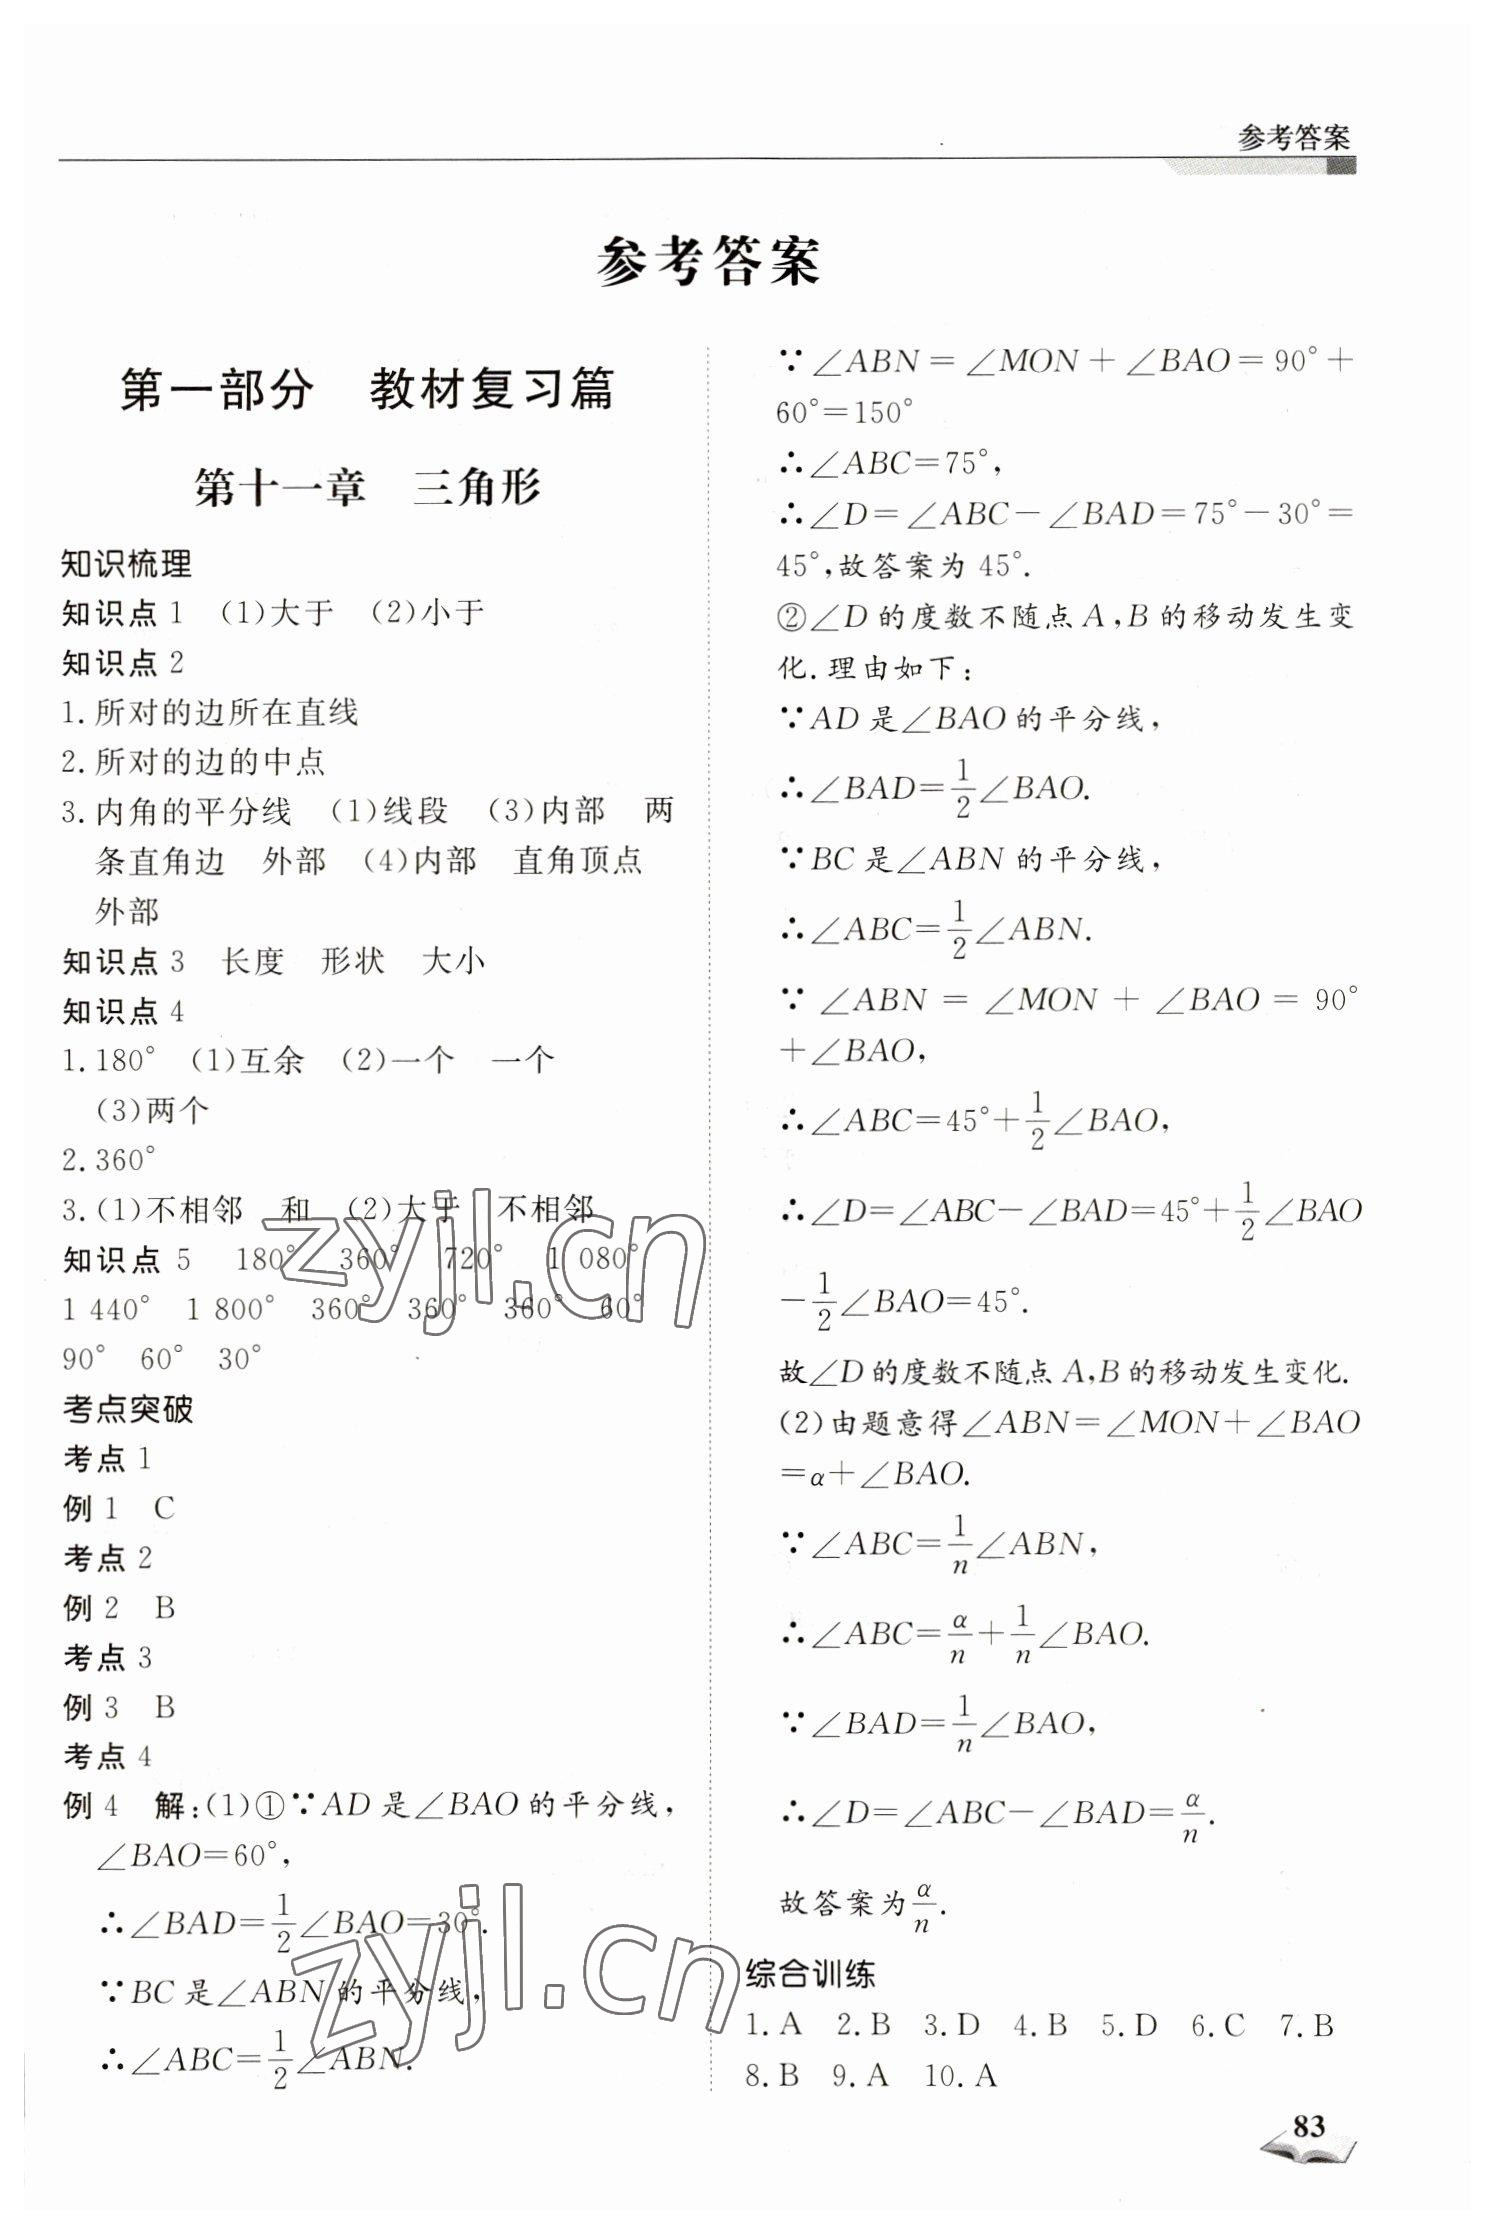 参考答案
参考答案
第一部分 教材复习篇
第十一章 三角形
知识梳理
知识点1 (1)大于 (2)小于
知识点2
1.所对的边所在直线
2.所对的边的中点
3.内角的平分线 (1)线段 (3)内部 两
条直角边 外部 (4)内部 直角顶点
外部
知识点3 长度 形状 大小
知识点4
1.180° (1)互余 (2)一个 一个
(3)两个
2.360°
3.(1)不相邻 和 (2)大于 不相邻
知识点5 180° 360° 720° 1 080°
1 440° 1 800° 360° 360° 360° 60°
90° 60° 30°
考点突破
考点1
例1 C
考点2
例2 B
考点3
例3 B
考点4
例4 解:(1)①∵AD是∠BAO的平分线,
∠BAO=60°,
∴∠BAD=1/2∠BAO=30°.
∵BC是∠ABN的平分线,
∴∠ABC=1/2∠ABN.
∵∠ABN=∠MON+∠BAO=90°+
60°=150°
∴∠ABC=75°,
∴∠D=∠ABC-∠BAD=75°-30°=
45°,故答案为45°.
②∠D的度数不随点A,B的移动发生变
化.理由如下:
∵AD是∠BAO的平分线,
∴∠BAD=1/2∠BAO.
∵BC是∠ABN的平分线,
∴∠ABC=1/2∠ABN.
∵∠ABN=∠MON+∠BAO=90°
+∠BAO,
∴∠ABC=45°+1/2∠BAO,
∴∠D=∠ABC-∠BAD=45°+1/2∠BAO
-1/2∠BAO=45°.
故∠D的度数不随点A,B的移动发生变化.
(2)由题意得∠ABN=∠MON+∠BAO
=α+∠BAO.
∵∠ABC=1/n∠ABN,
∴∠ABC=α/n+1/n∠BAO.
∵∠BAD=1/n∠BAO,
∴∠D=∠ABC-∠BAD=α/n.
故答案为α/n.
综合训练
1.A 2.B 3.D 4.B 5.D 6.C 7.B
8.B 9.A 10.A
83
zyjl.cn
zyjl.cn